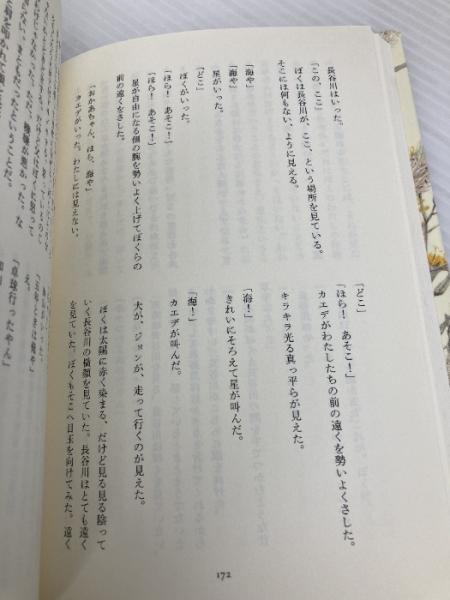 長谷川はいった。
「この、ここ」
ぼくは長谷川が、ここ、という場所を見ている。
そこには何もない、ように見える。
「海や」
「海や」
星がいった。
「どこ」
ぼくがいった。
「ほら! あそこ!」
「ほら! あそこ!」
星が自由になる側の腕を勢いよく上げてぼくらの
前の遠くをさした。
「おかあちゃん、ほら、海や」
カエデがいった。わたしには見えない。
「どこ」
「ほら! あそこ!」
カエデがわたしたちの前の遠くを勢いよくさした。
キラキラ光る真っ平らが見えた。
「海!」
きれいにそろえて星が叫んだ。
「海!」
カエデが叫んだ。
犬が、ジョンが、走って行くのが見えた。
ぼくは太陽に赤く染まる、だけど見る見る陰って
いく長谷川の横顔を見ていた。長谷川はとても遠く
を見ていた。ぼくもそこへ目玉を向けてみた。遠く
172
まともだったということだ。
「卓球行ったやん」